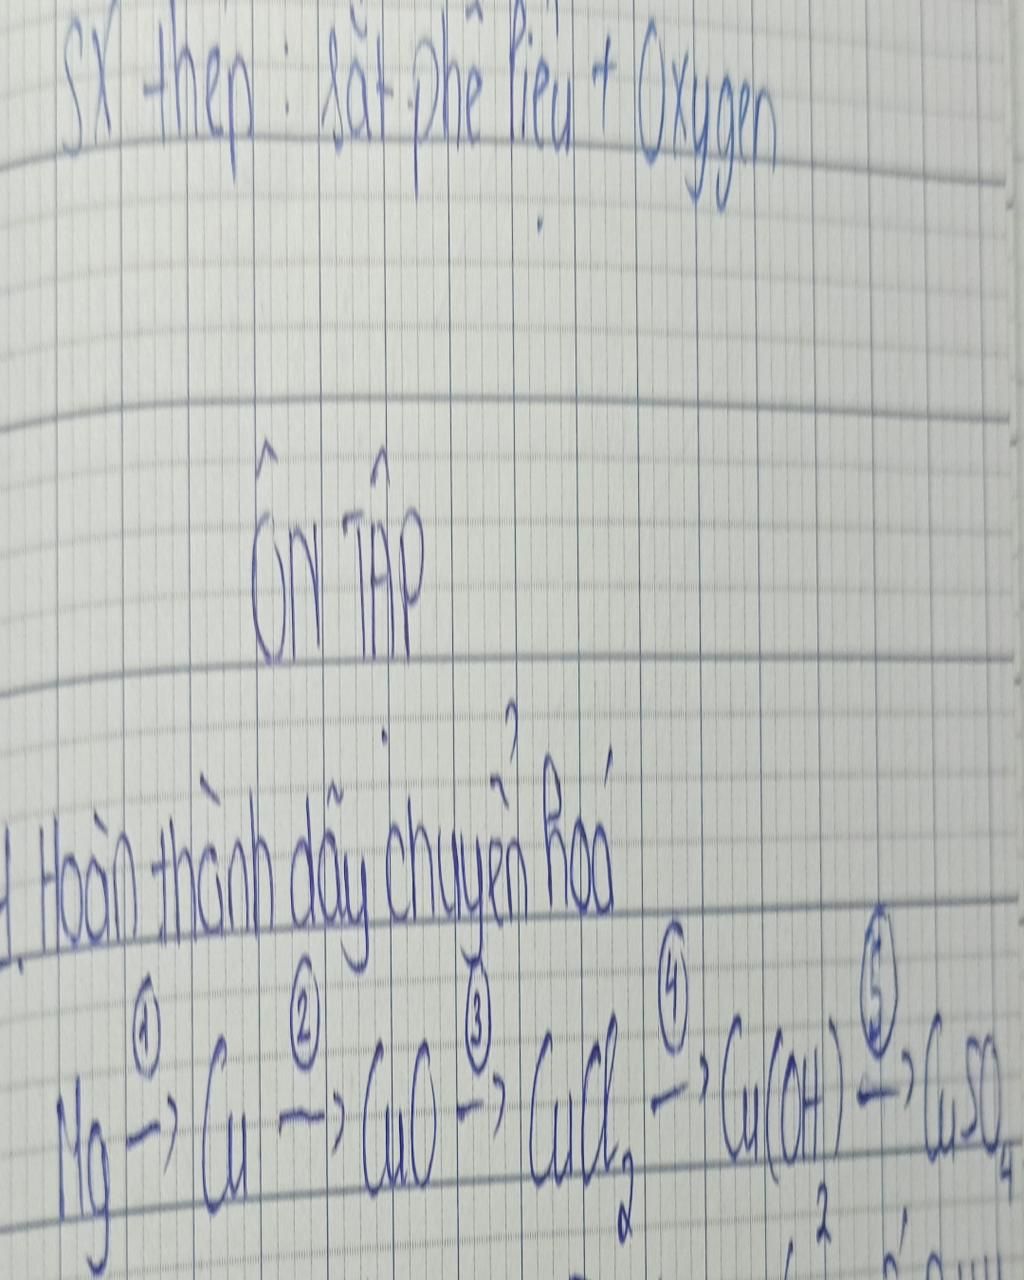 SX thép: sắt phế liệu + Oxygen
ÔN TẬP
1. Hoàn thành dãy chuyển hoá
① ② ③ ④ ⑤
Mg → Cu → CuO → CuCl₂ → Cu(OH)₂ → CuSO₄